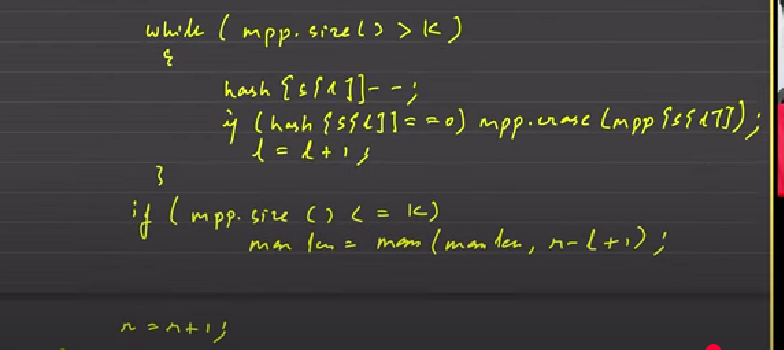 while ( mpp.size() > k)
{
hash [s[l]]--;
if (hash [s[l]]==0) mpp.erase (mpp[s[l]]);
l = l+1;
}
if ( mpp.size () <= k)
maxlen = max (maxlen, r-l+1);
r = r+1;